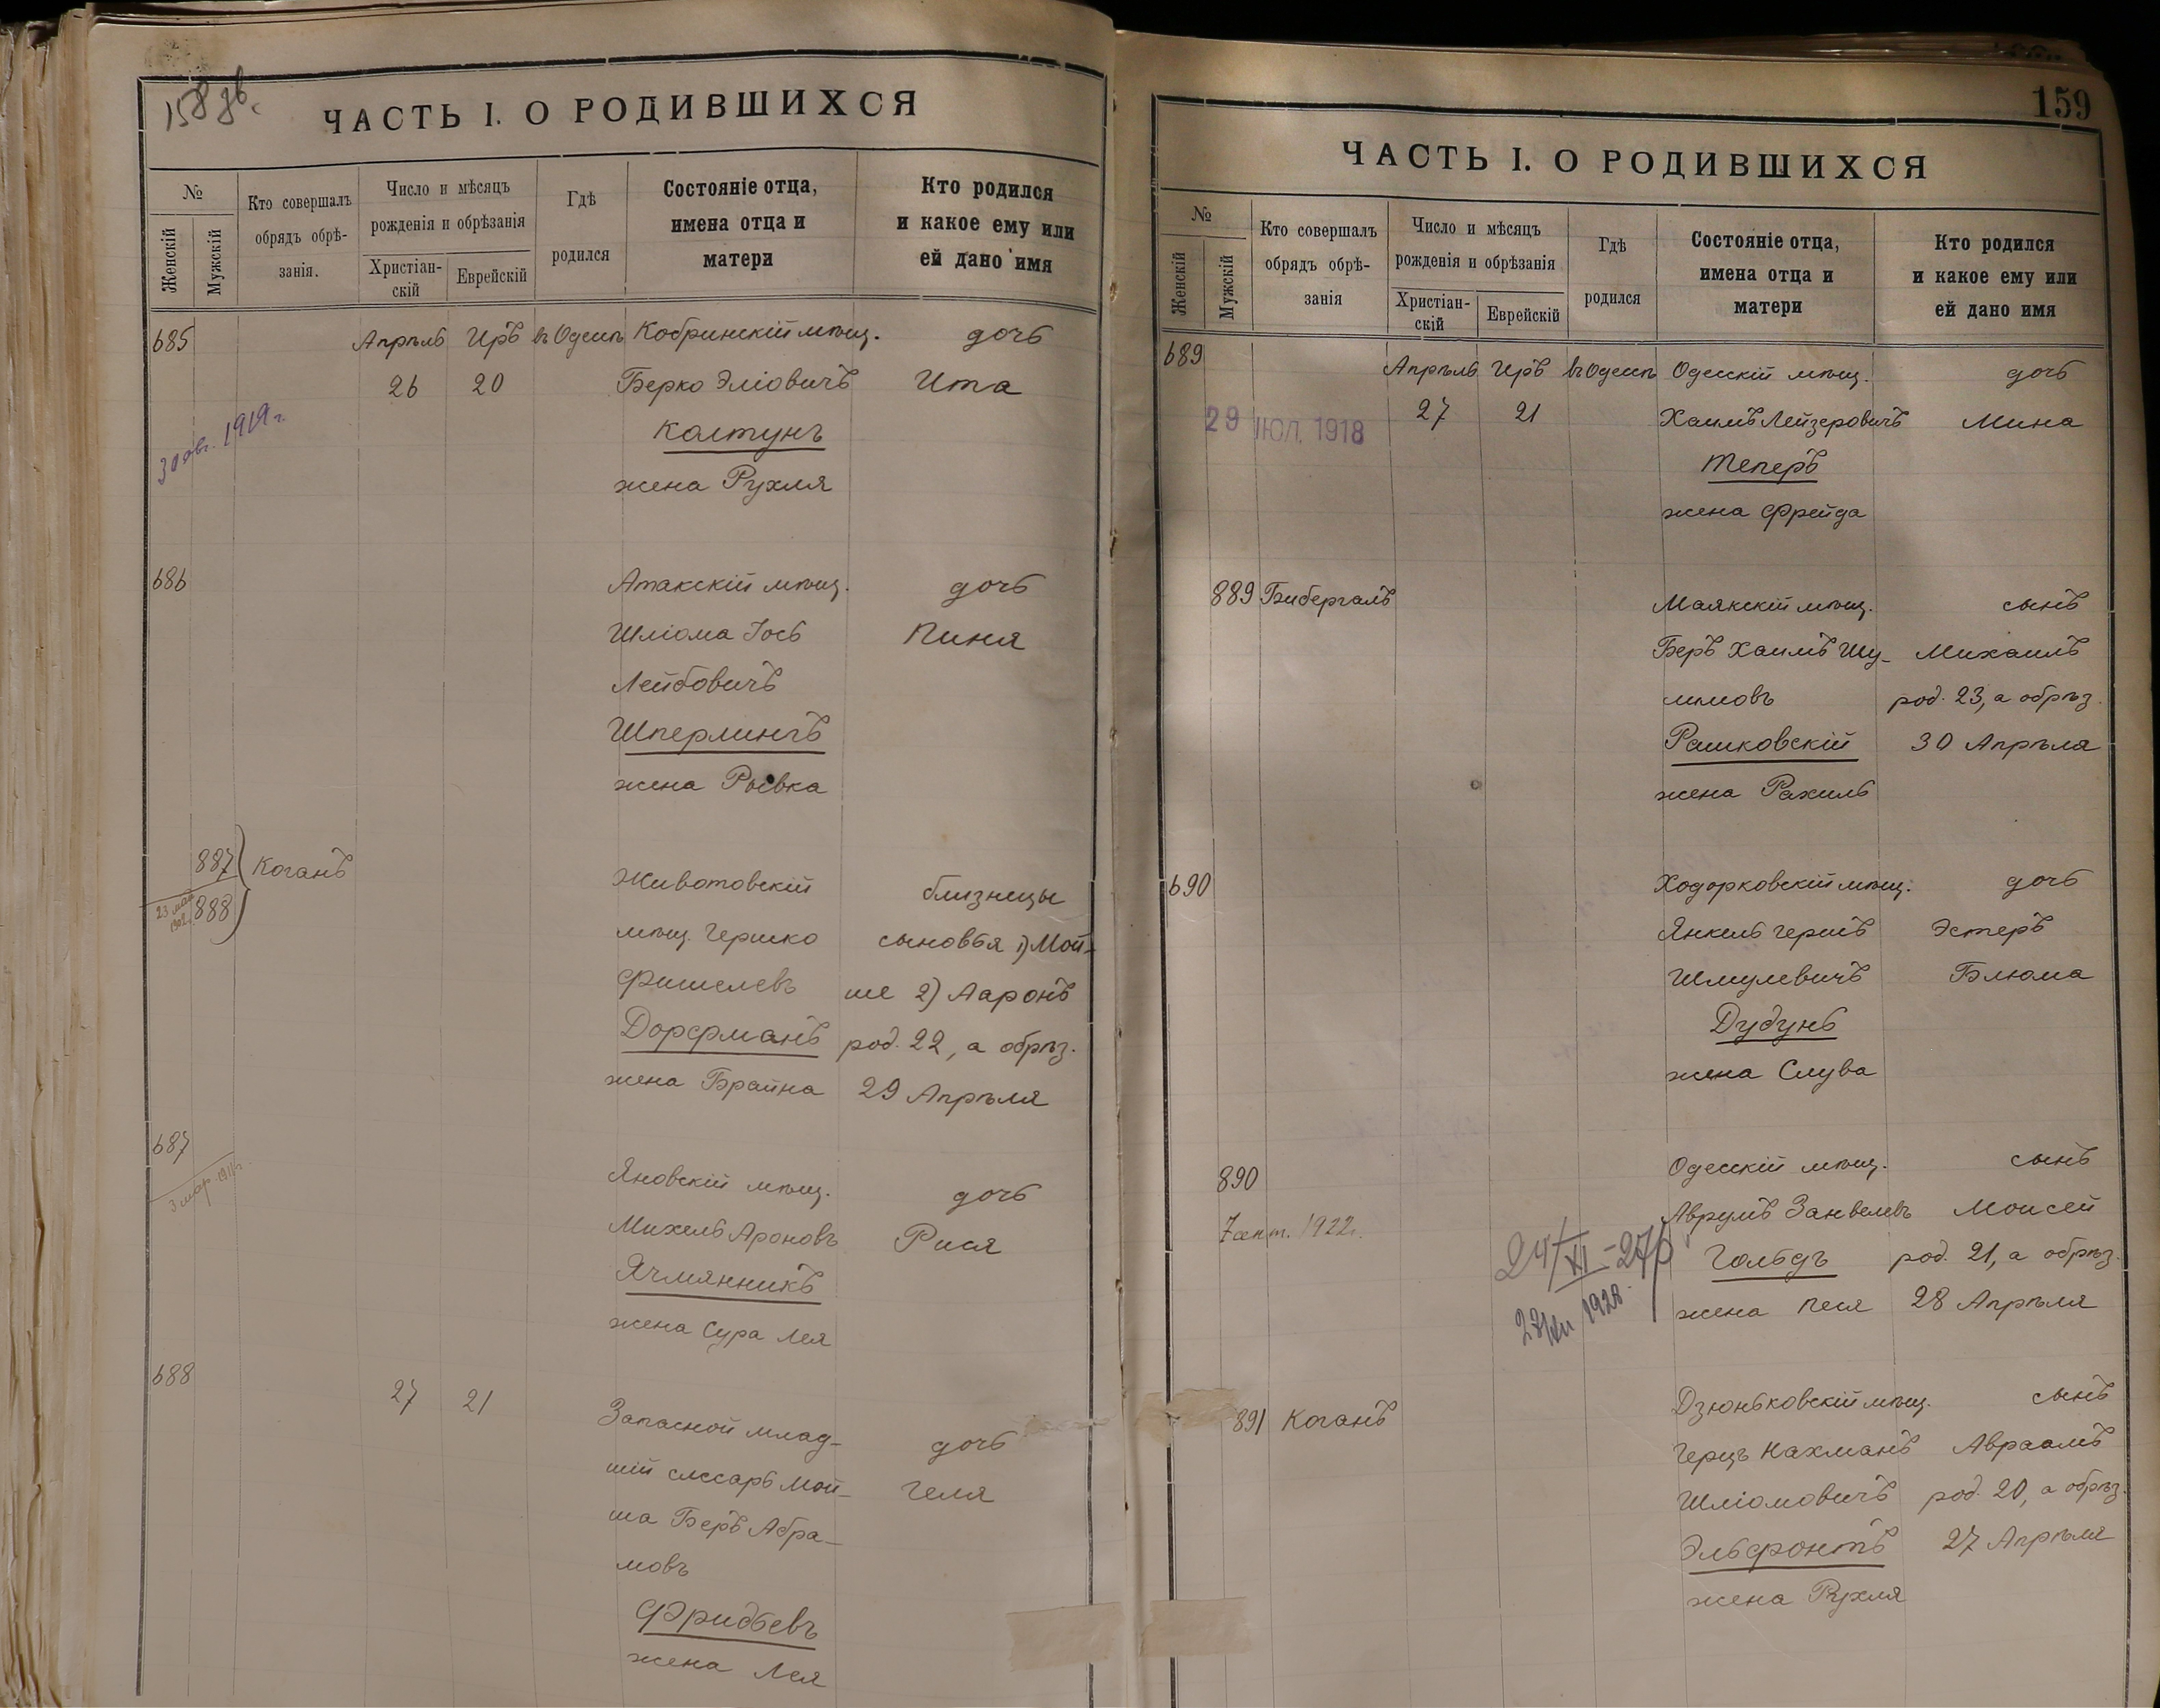 158 об.
ЧАСТЬ I. О РОДИВШИХСЯ
№
Женскій
Мужскій
Кто совершалъ
обрядъ обрѣ-
занія.
Число и мѣсяцъ
рожденія и обрѣзанія
Христіан-
скій
Еврейскій
Гдѣ
родился
Состояніе отца,
имена отца и
матери
Кто родился
и какое ему или
ей дано имя
685 Апрѣль Иръ въ Одессѣ Кобринскій мѣщ. дочь
26 20 Берко Эліовичъ Ита
Колтунъ
30 авг. 1919 г.
жена Рухля
686 Атакскій мѣщ. дочь
Шліома Іось Пиня
Лейбовичъ
Шперлингъ
жена Рывка
887 Коганъ Животовскій близнецы
888
23 мая
мѣщ. Гершко сыновья 1) Мой-
Фишелевъ ше 2) Ааронъ
Дорфманъ род. 22, а обрѣз.
жена Брайна 29 Апрѣля
687 Яновскій мѣщ. дочь
3 мар. 1911 г.
Михель Ароновъ Рися
Ячмянникъ
жена Сура Лея
688 27 21 Запасной млад-
шій слесарь Мой- дочь
ша Беръ Абра- Геля
мовъ
Фридбевъ
жена Лея
159
ЧАСТЬ I. О РОДИВШИХСЯ
№
Женскій
Мужскій
Кто совершалъ
обрядъ обрѣ-
занія
Число и мѣсяцъ
рожденія и обрѣзанія
Христіан-
скій
Еврейскій
Гдѣ
родился
Состояніе отца,
имена отца и
матери
Кто родился
и какое ему или
ей дано имя
689 Апрѣль Иръ въ Одессѣ Одесскій мѣщ. дочь
29 ІЮЛ. 1918 27 21 Хаимъ Лейзеровичъ Мина
Теперъ
жена Фрейда
889 Бибергалъ Маякскій мѣщ. сынъ
Беръ Хаимъ Шу- Михаилъ
лимовъ род. 23, а обрѣз.
Рашковскій 30 Апрѣля
жена Рахиль
690 Ходорковскій мѣщ. дочь
Янкель Гершъ Эстеръ
Шмулевичъ Блюма
Дудунъ
жена Слува
890 Одесскій мѣщ. сынъ
7 сент. 1922 г. Аврумъ Занвелевъ Моисей
24/XI-27 р. Гольдъ род. 21, а обрѣз.
1928 жена Песя 28 Апрѣля
891 Коганъ Дзюньковскій мѣщ. сынъ
Герцъ Нахманъ Авраамъ
Шліомовичъ род. 20, а обрѣз.
Эльфонтъ 27 Апрѣля
жена Рухля